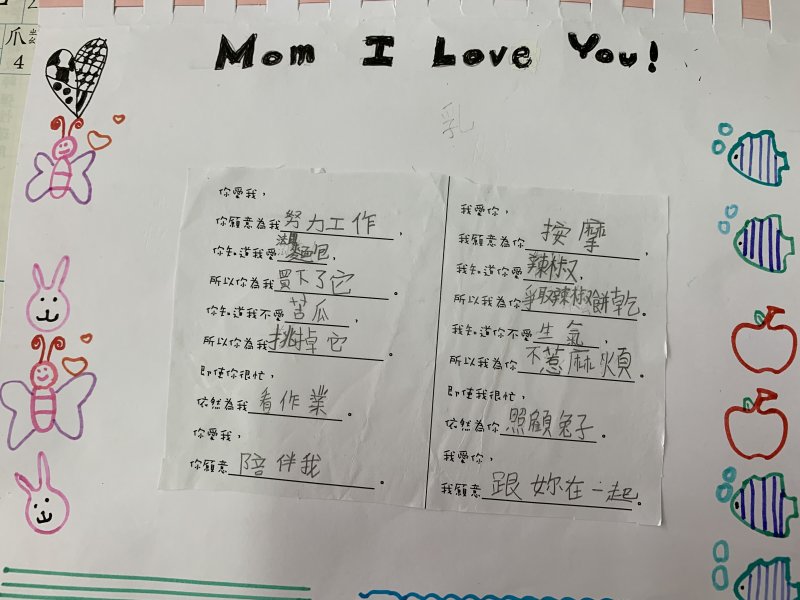 爪
4
Mom I Love You!
乳
你愛我，
你願意為我努力工作，
你知道我愛法國麵包，
所以你為我買下了它。
你知道我不愛苦瓜，
所以你為我挑掉它。
即使你很忙，
依然為我看作業。
你愛我，
你願意陪伴我。
我愛你，
我願意為你按摩，
我知道你愛辣椒，
所以我為你爭取辣椒餅乾。
我知道你不愛生氣，
所以我為你不惹麻煩。
即使我很忙，
依然為你照顧兔子。
我愛你，
我願意跟妳在一起。